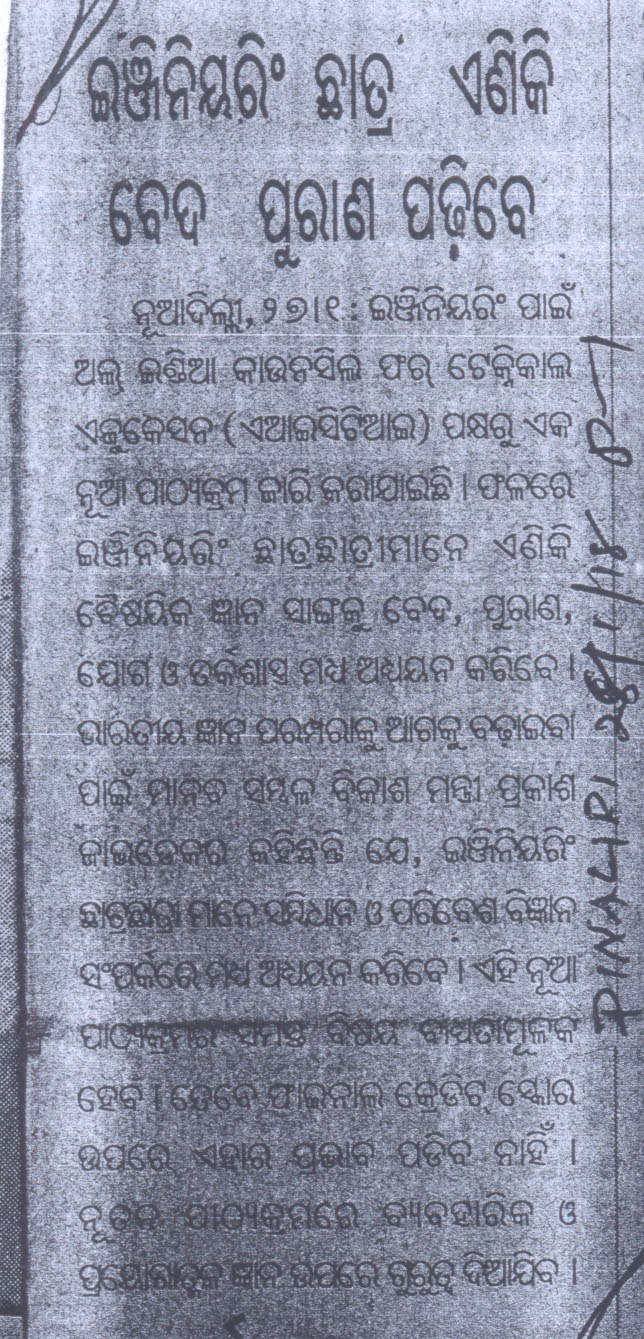 ଇଞ୍ଜିନିୟରିଂ ଛାତ୍ର ଏଣିକି
ବେଦ ପୁରାଣ ପଢ଼ିବେ
ନୂଆଦିଲ୍ଲୀ, ୨୭।୧ : ଇଞ୍ଜିନିୟରିଂ ପାଇଁ
ଅଲ୍ ଇଣ୍ଡିଆ କାଉନସିଲ ଫର୍ ଟେକ୍ନିକାଲ
ଏଜୁକେସନ (ଏଆଇସିଟିଆଇ) ପକ୍ଷରୁ ଏକ
ନୂଆ ପାଠ୍ୟକ୍ରମ ଜାରି କରାଯାଇଛି । ଫଳରେ
ଇଞ୍ଜିନିୟରିଂ ଛାତ୍ରଛାତ୍ରୀମାନେ ଏଣିକି
ବୈଷୟିକ ଜ୍ଞାନ ସାଙ୍ଗକୁ ବେଦ, ପୁରାଣ,
ଯୋଗ ଓ ତର୍କଶାସ୍ତ୍ର ମଧ୍ୟ ଅଧ୍ୟୟନ କରିବେ ।
ଭାରତୀୟ ଜ୍ଞାନ ପରମ୍ପରାକୁ ଆଗକୁ ବଢ଼ାଇବା
ପାଇଁ ମାନବ ସମ୍ବଳ ବିକାଶ ମନ୍ତ୍ରୀ ପ୍ରକାଶ
ଜାଭଡେକର କହିଛନ୍ତି ଯେ, ଇଞ୍ଜିନିୟରିଂ
ଛାତ୍ରଛାତ୍ରୀ ମାନେ ସମ୍ବିଧାନ ଓ ପରିବେଶ ବିଜ୍ଞାନ
ସଂପର୍କରେ ମଧ୍ୟ ଅଧ୍ୟୟନ କରିବେ । ଏହି ନୂଆ
ପାଠ୍ୟକ୍ରମର ସମସ୍ତ ବିଷୟ ବାଧ୍ୟତାମୂଳକ
ହେବ । ତେବେ ଫାଇନାଲ କ୍ରେଡିଟ୍ ସ୍କୋର
ଉପରେ ଏହାର ପ୍ରଭାବ ପଡିବ ନାହିଁ ।
ନୂତନ ପାଠ୍ୟକ୍ରମରେ ବ୍ୟବହାରିକ ଓ
ପ୍ରୟୋଗାତ୍ମକ ଜ୍ଞାନ ଉପରେ ଗୁରୁତ୍ୱ ଦିଆଯିବ ।
P-1